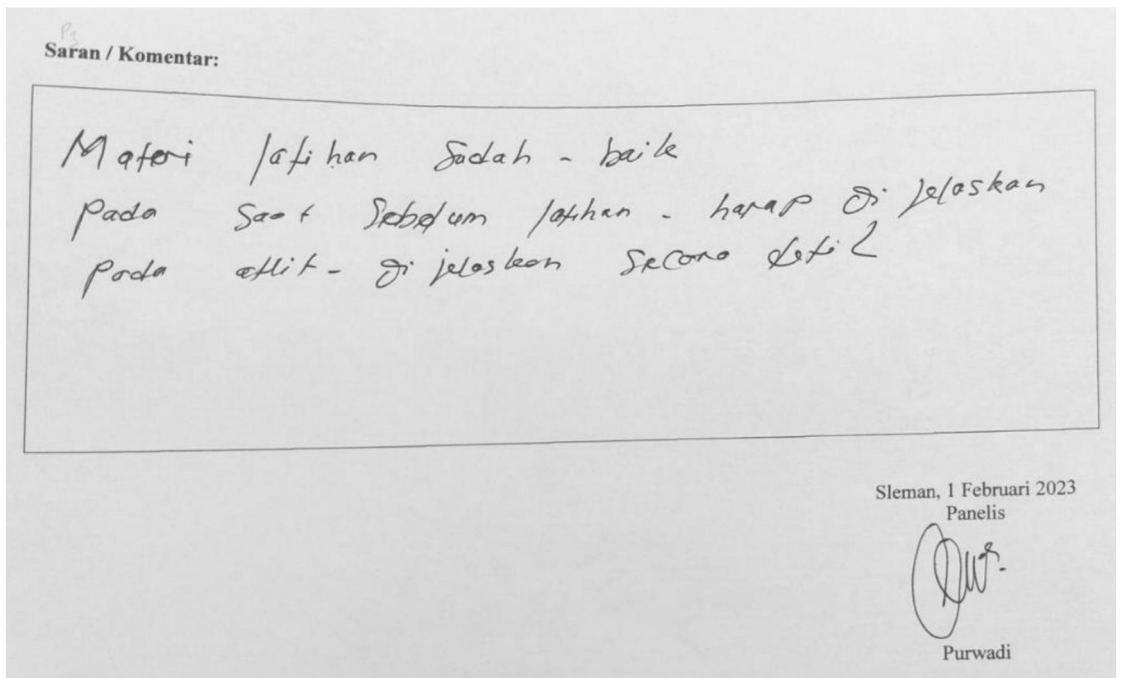 P3
Saran / Komentar:
Materi latihan sudah - baik
pada saat sebelum latihan - harap di jelaskan
pada atlit - di jelaskan secara detil
Sleman, 1 Februari 2023
Panelis
Purwadi